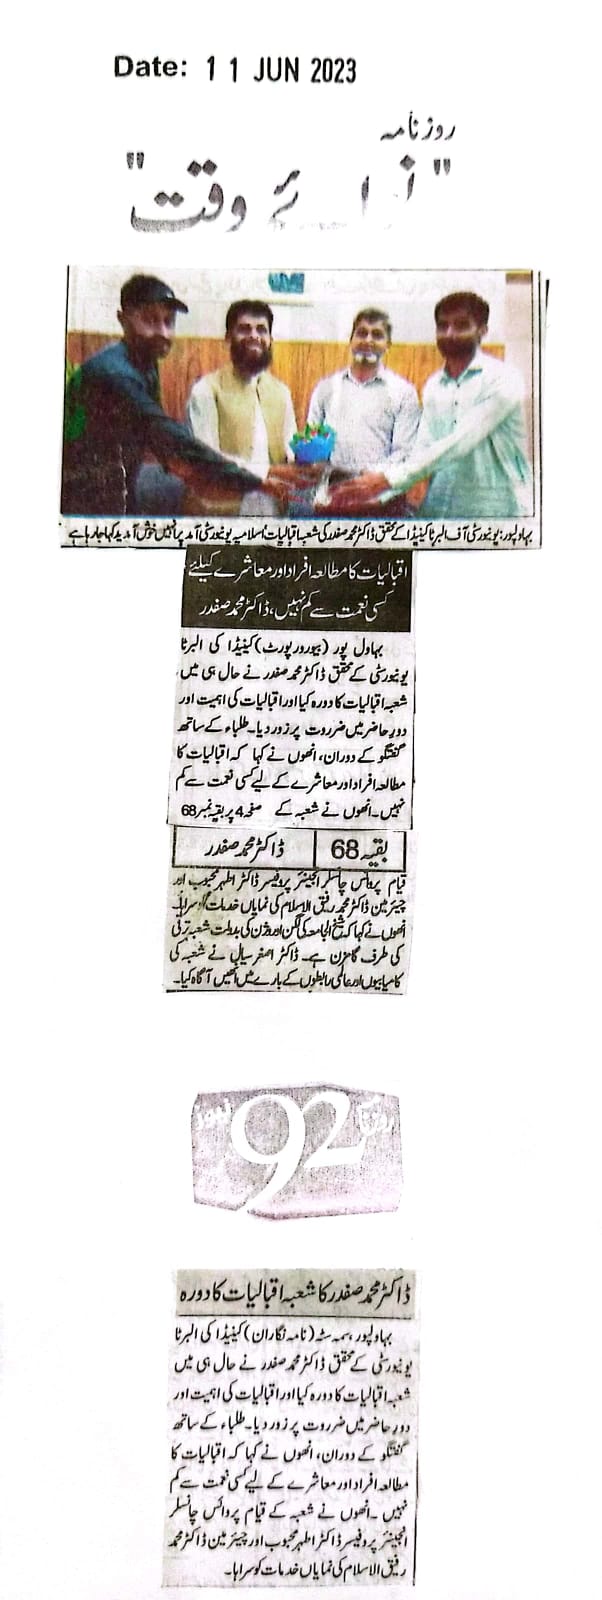 Date: 11 JUN 2023
روزنامہ
"نوائے وقت"
بہاولپور: یونیورسٹی آف البرٹا کینیڈا کے محقق ڈاکٹر محمد صفدر کی شعبہ اقبالیات اسلامیہ یونیورسٹی آمد پر انہیں خوش آمدید کہا جا رہا ہے
اقبالیات کا مطالعہ افراد اور معاشرے کیلئے
کسی نعمت سے کم نہیں، ڈاکٹر محمد صفدر
بہاول پور (بیورورپورٹ) کینیڈا کی البرٹا
یونیورسٹی کے محقق ڈاکٹر محمد صفدر نے حال ہی میں
شعبہ اقبالیات کا دورہ کیا اور اقبالیات کی اہمیت اور
دور حاضر میں ضرورت پر زور دیا۔ طلباء کے ساتھ
گفتگو کے دوران، انھوں نے کہا کہ اقبالیات کا
مطالعہ افراد اور معاشرے کے لیے کسی نعمت سے کم
نہیں۔ انھوں نے شعبہ کے صفحہ 4 پر بقیہ نمبر 68
بقیہ 68 ڈاکٹر محمد صفدر
قیام پر وائس چانسلر انجینئر پروفیسر ڈاکٹر اطہر محبوب اور
چیئرمین ڈاکٹر محمد رفیق الاسلام کی نمایاں خدمات کو سراہا۔
انھوں نے کہا کہ شیخ الجامعہ کی لگن اور وژن کی بدولت شعبہ ترقی
کی طرف گامزن ہے۔ ڈاکٹر اصغر سیال نے شعبہ کی
کامیابیوں اور عالمی رابطوں کے بارے میں انھیں آگاہ کیا۔
روزنامہ 92 نیوز
ڈاکٹر محمد صفدر کا شعبہ اقبالیات کا دورہ
بہاولپور، سمہ سٹہ (نامہ نگاران) کینیڈا کی البرٹا
یونیورسٹی کے محقق ڈاکٹر محمد صفدر نے حال ہی میں
شعبہ اقبالیات کا دورہ کیا اور اقبالیات کی اہمیت اور
دور حاضر میں ضرورت پر زور دیا۔ طلباء کے ساتھ
گفتگو کے دوران، انھوں نے کہا کہ اقبالیات کا
مطالعہ افراد اور معاشرے کے لیے کسی نعمت سے کم
نہیں۔ انھوں نے شعبہ کے قیام پر وائس چانسلر
انجینئر پروفیسر ڈاکٹر اطہر محبوب اور چیئرمین ڈاکٹر محمد
رفیق الاسلام کی نمایاں خدمات کو سراہا۔